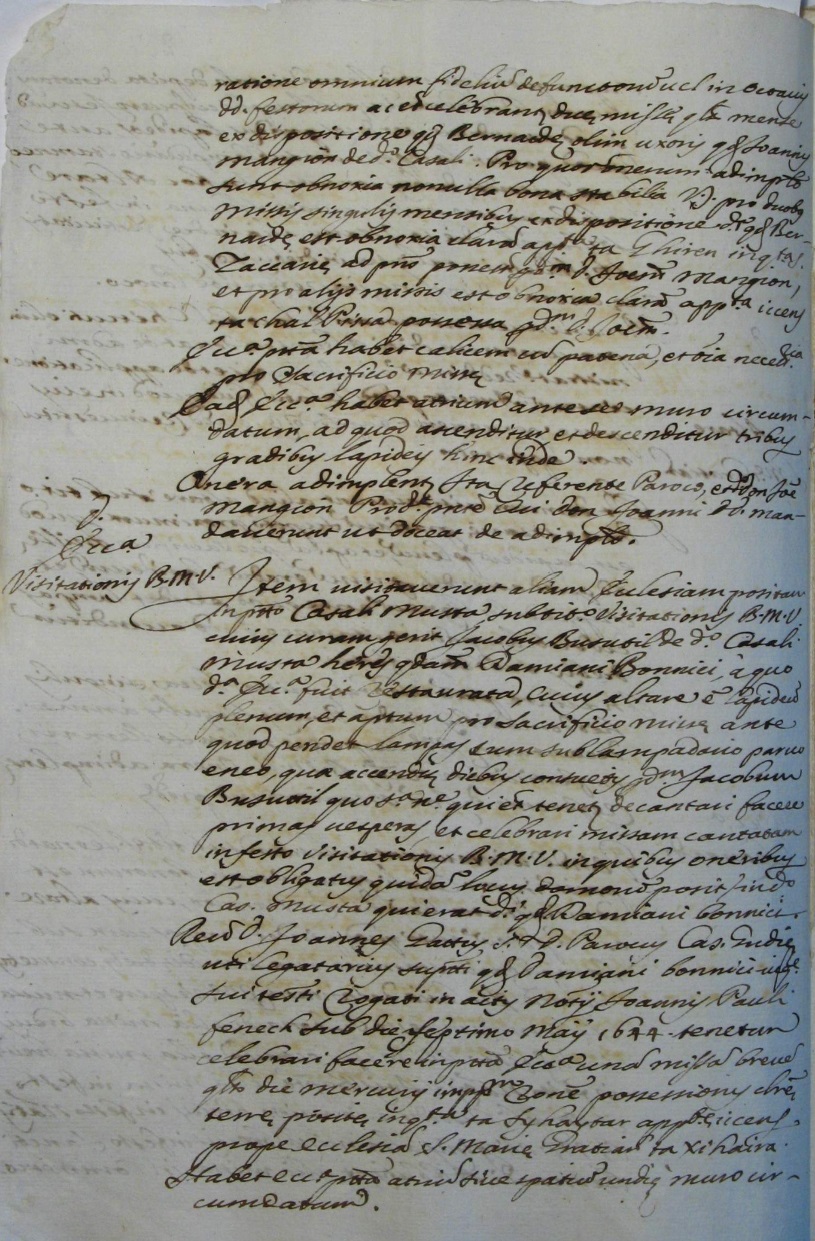 ratione omnium fideliũ defunctorũ vel in octavis
dd. festorum ac et celebrantr duę missę qlt mense
ex dispositione qd Bernardę olim uxoris qd Joannis
mangion de do Casali. Pro quor onerum adimpto
sunt obnoxia nonulla bona stabilia Vz. pro duobus
missis singulis mensibus ex dispositione dę qd Ber-
nardę est obnoxia clausa appta ta Ghiren in qta S.
Zaccarię ad pns possessa per D. Joem Mangion,
et pro alijs missis est obnoxia clausa appta icens
ta chal Pissa possessa pdm D. Joem.
Ecca pnta habet calicem cũ patena, et oia necessria
pro Sacrificio missę
Ead Ecca habet atrium ante se muro circum-
datum, ad quod ascenditur et descenditur tribus
gradibus lapideis hinc inde.
Onera adimplentr Ita referente Paroco, et do Don Joe
Mangion Prode pnto Cui don Joanni Dd. man-
daverunt ut doceat de adimpto.
D.
Ecca
Visitationis B.M.V. Item visitaverunt aliam Eclesiam positam
in pnto Casali Musta sub tito Visitationis B.M.V.
cuius curam gerit Jacobus Busutil de do Casali
Musta heres qdam Damiani Bonnici, a quo
da Ecca fuit restaurata, cuius altare ẽ lapideũ
plenum, et aptum pro sacrificio missę ante
quod pendet lampas cum sublampadario parvo
eneo, qua accendr diebus consuetis pdm Jacobum
Busutil quo sa ne qui et tenetr decantari facere
primas vesperas et celebrari missam cantatam
in festo Visitationis B.M.V. in quibus oneribus
est obligatus quidã locus domorũ posit in do
Cas. Musta qui erat di qd Damiani bonnici.
Revd D. Joannes Gactus S.T.D. Parocus Cas. Gudię
uti legatarius supti qd Damiani bonnici vige
sui testi rogati in actis Notrij Joannis Pauli
fenech sub die septimo Maij 1644. tenetur
celebrari facere in pnta Ecca unã missã brevẽ
qlt die mercurij imppm rone possessionis clrę
terrę positę in qta ta Syhaytar appte icens,
prope ecclesiã S. Marię Gratiar ta xihaira.
Habet ecca pnta atriũ sive spatiũ undiq muro cir-
cumdatum.